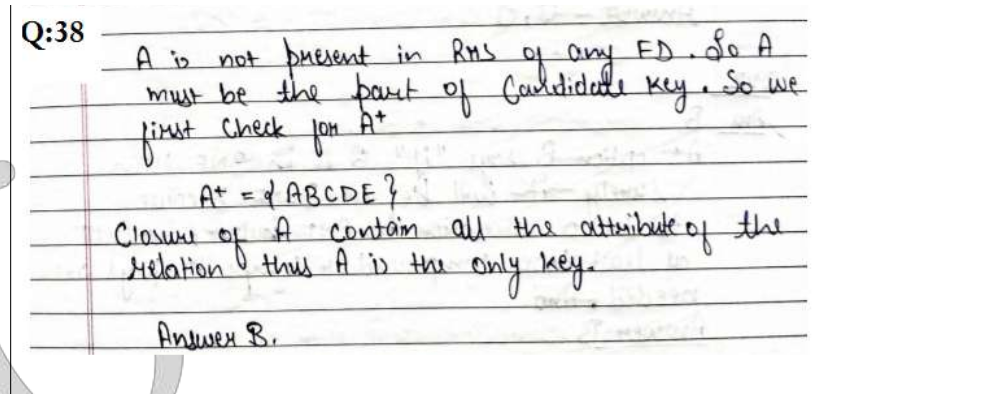 Q:38
A is not present in RHS of any FD. So A
must be the part of Candidate key. So we
first Check for A+
A+ = { ABCDE }
Closure of A contain all the attribute of the
relation thus A is the only key.
Answer B.